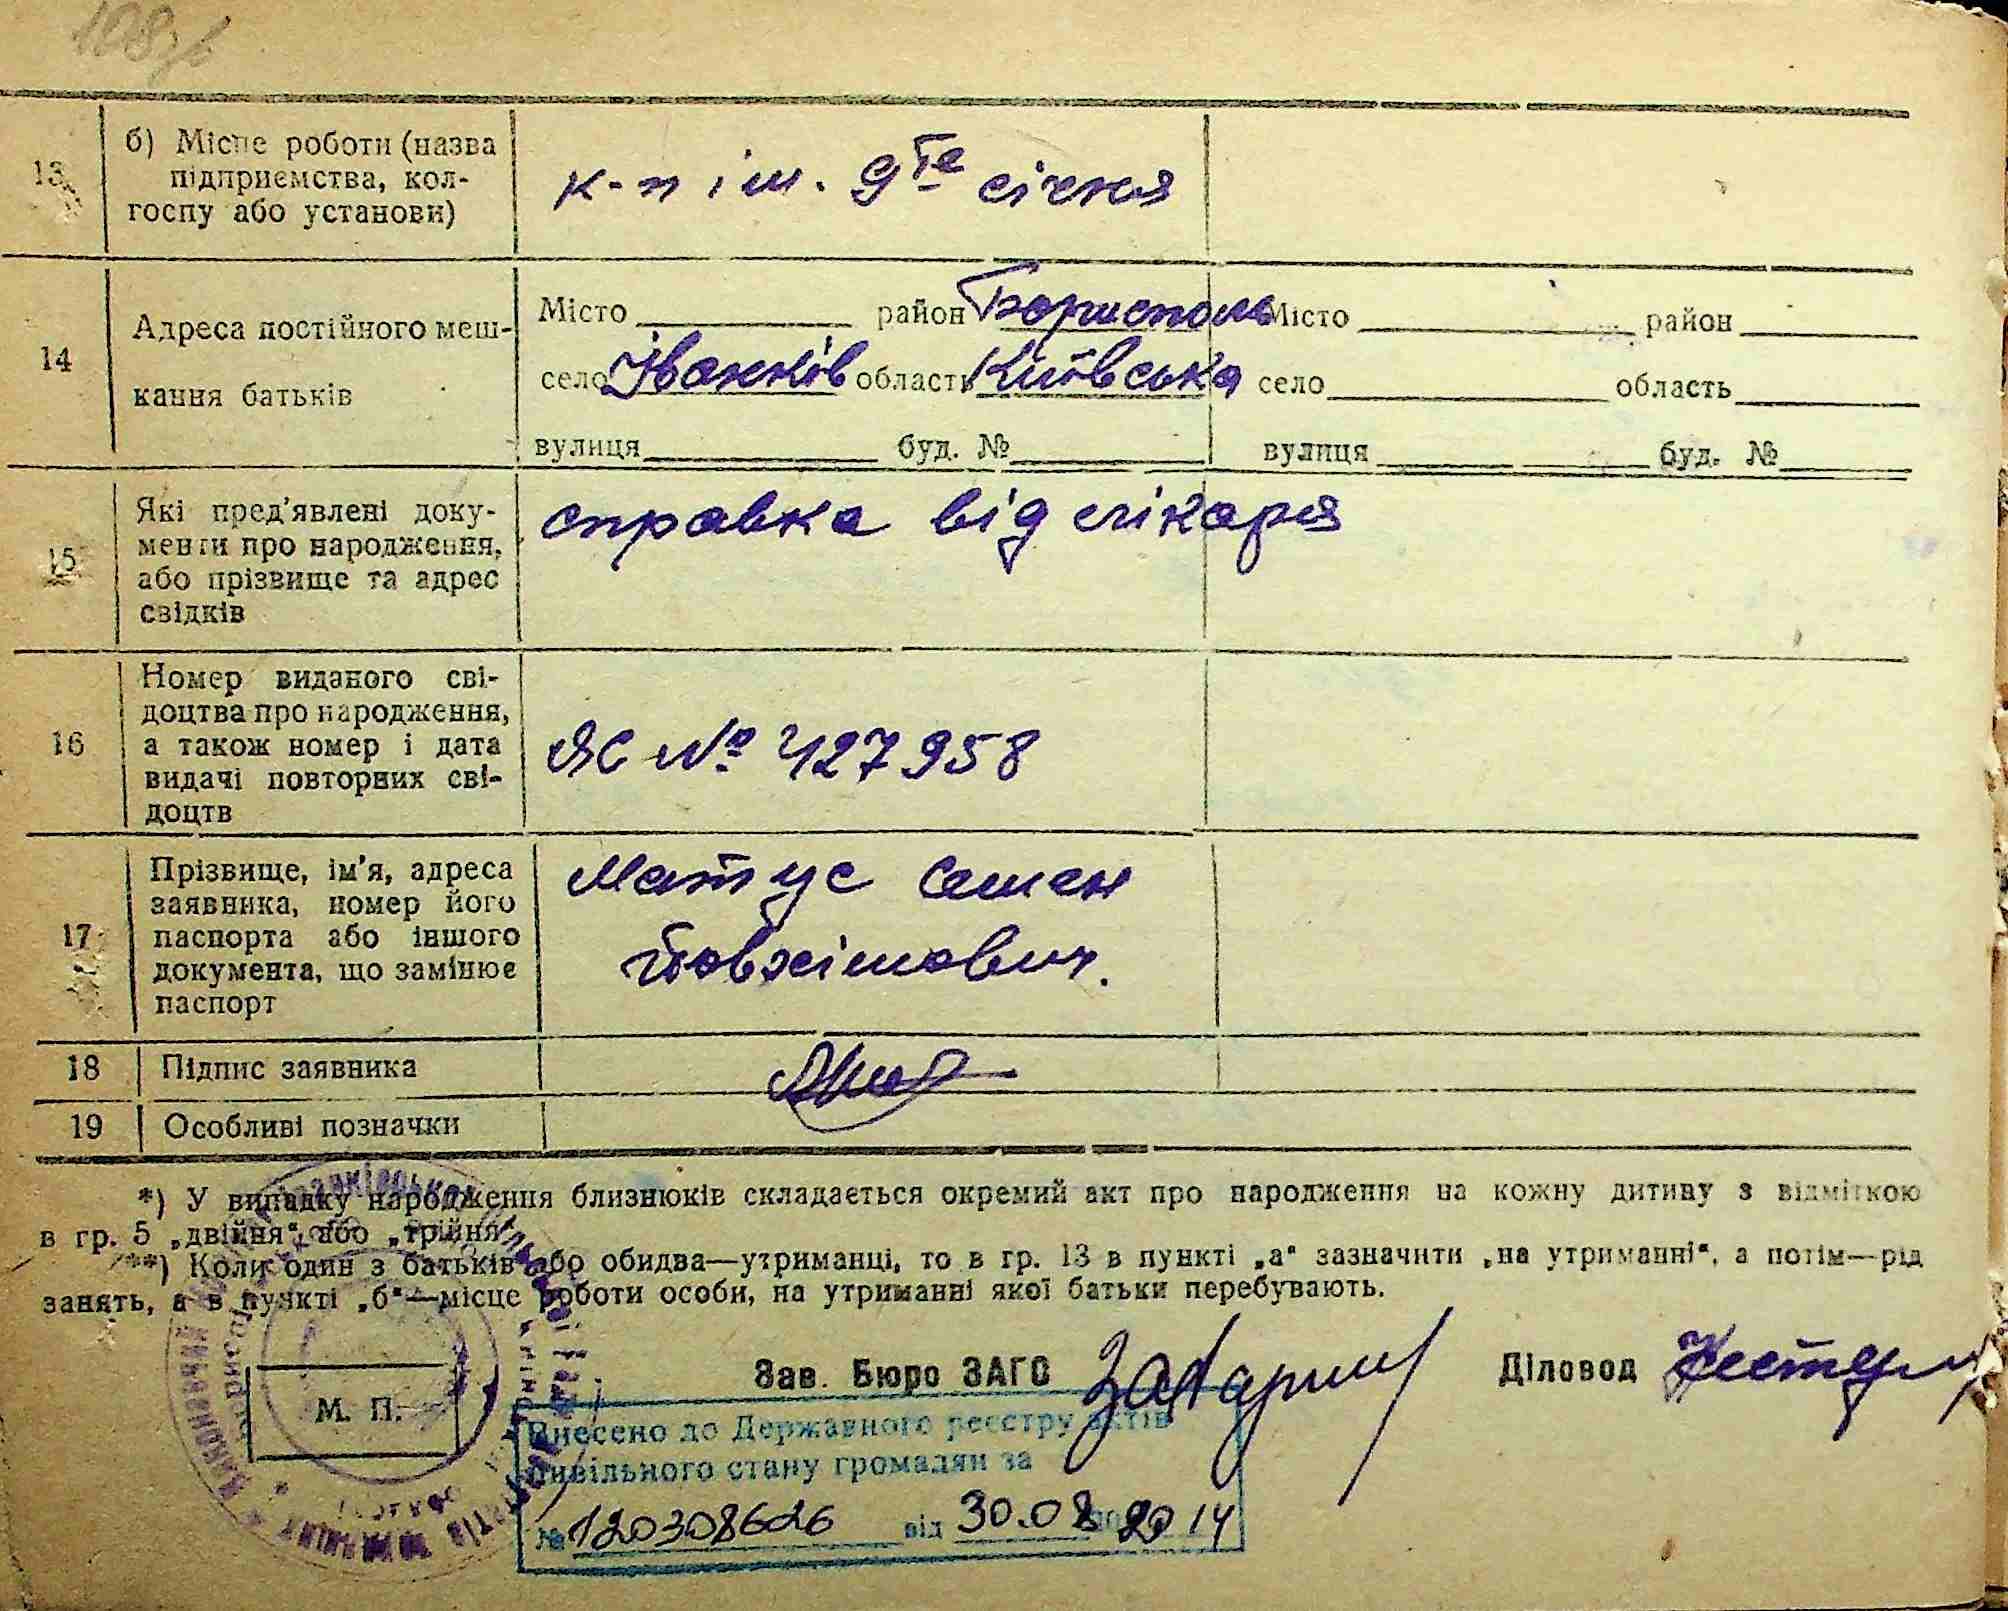 108зв
13
б) Місце роботи (назва
підприємства, кол-
госпу або установи)
к-п ім. 9те січня
14
Адреса постійного меш-
кання батьків
Місто район Бориспол
село Іванків область Київська
вулиця буд. №
Місто район
село область
вулиця буд. №
15
Які пред'явлені доку-
менти про народження,
або прізвище та адрес
свідків
справка від лікаря
16
Номер виданого сві-
доцтва про народження,
а також номер і дата
видачі повторних сві-
доцтв
ЯС № 427958
17
Прізвище, ім'я, адреса
заявника, номер його
паспорта або іншого
документа, що замінює
паспорт
Матус Семен
18
Підпис заявника
19
Особливі позначки
*) У випадку народження близнюків складається окремий акт про народження на кожну дитину з відміткою
в гр. 5 „двійня“, або „трійня“.
**) Коли один з батьків або обидва—утриманці, то в гр. 13 в пункті „а“ зазначити „на утриманні“, а потім—рід
занять, а в пункті „б“—місце роботи особи, на утриманні якої батьки перебувають.
М. П.
Зав. Бюро ЗАГС
Діловод
Внесено до Державного реєстру актів
цивільного стану громадян за
№ 120308626 від 30.08 2014